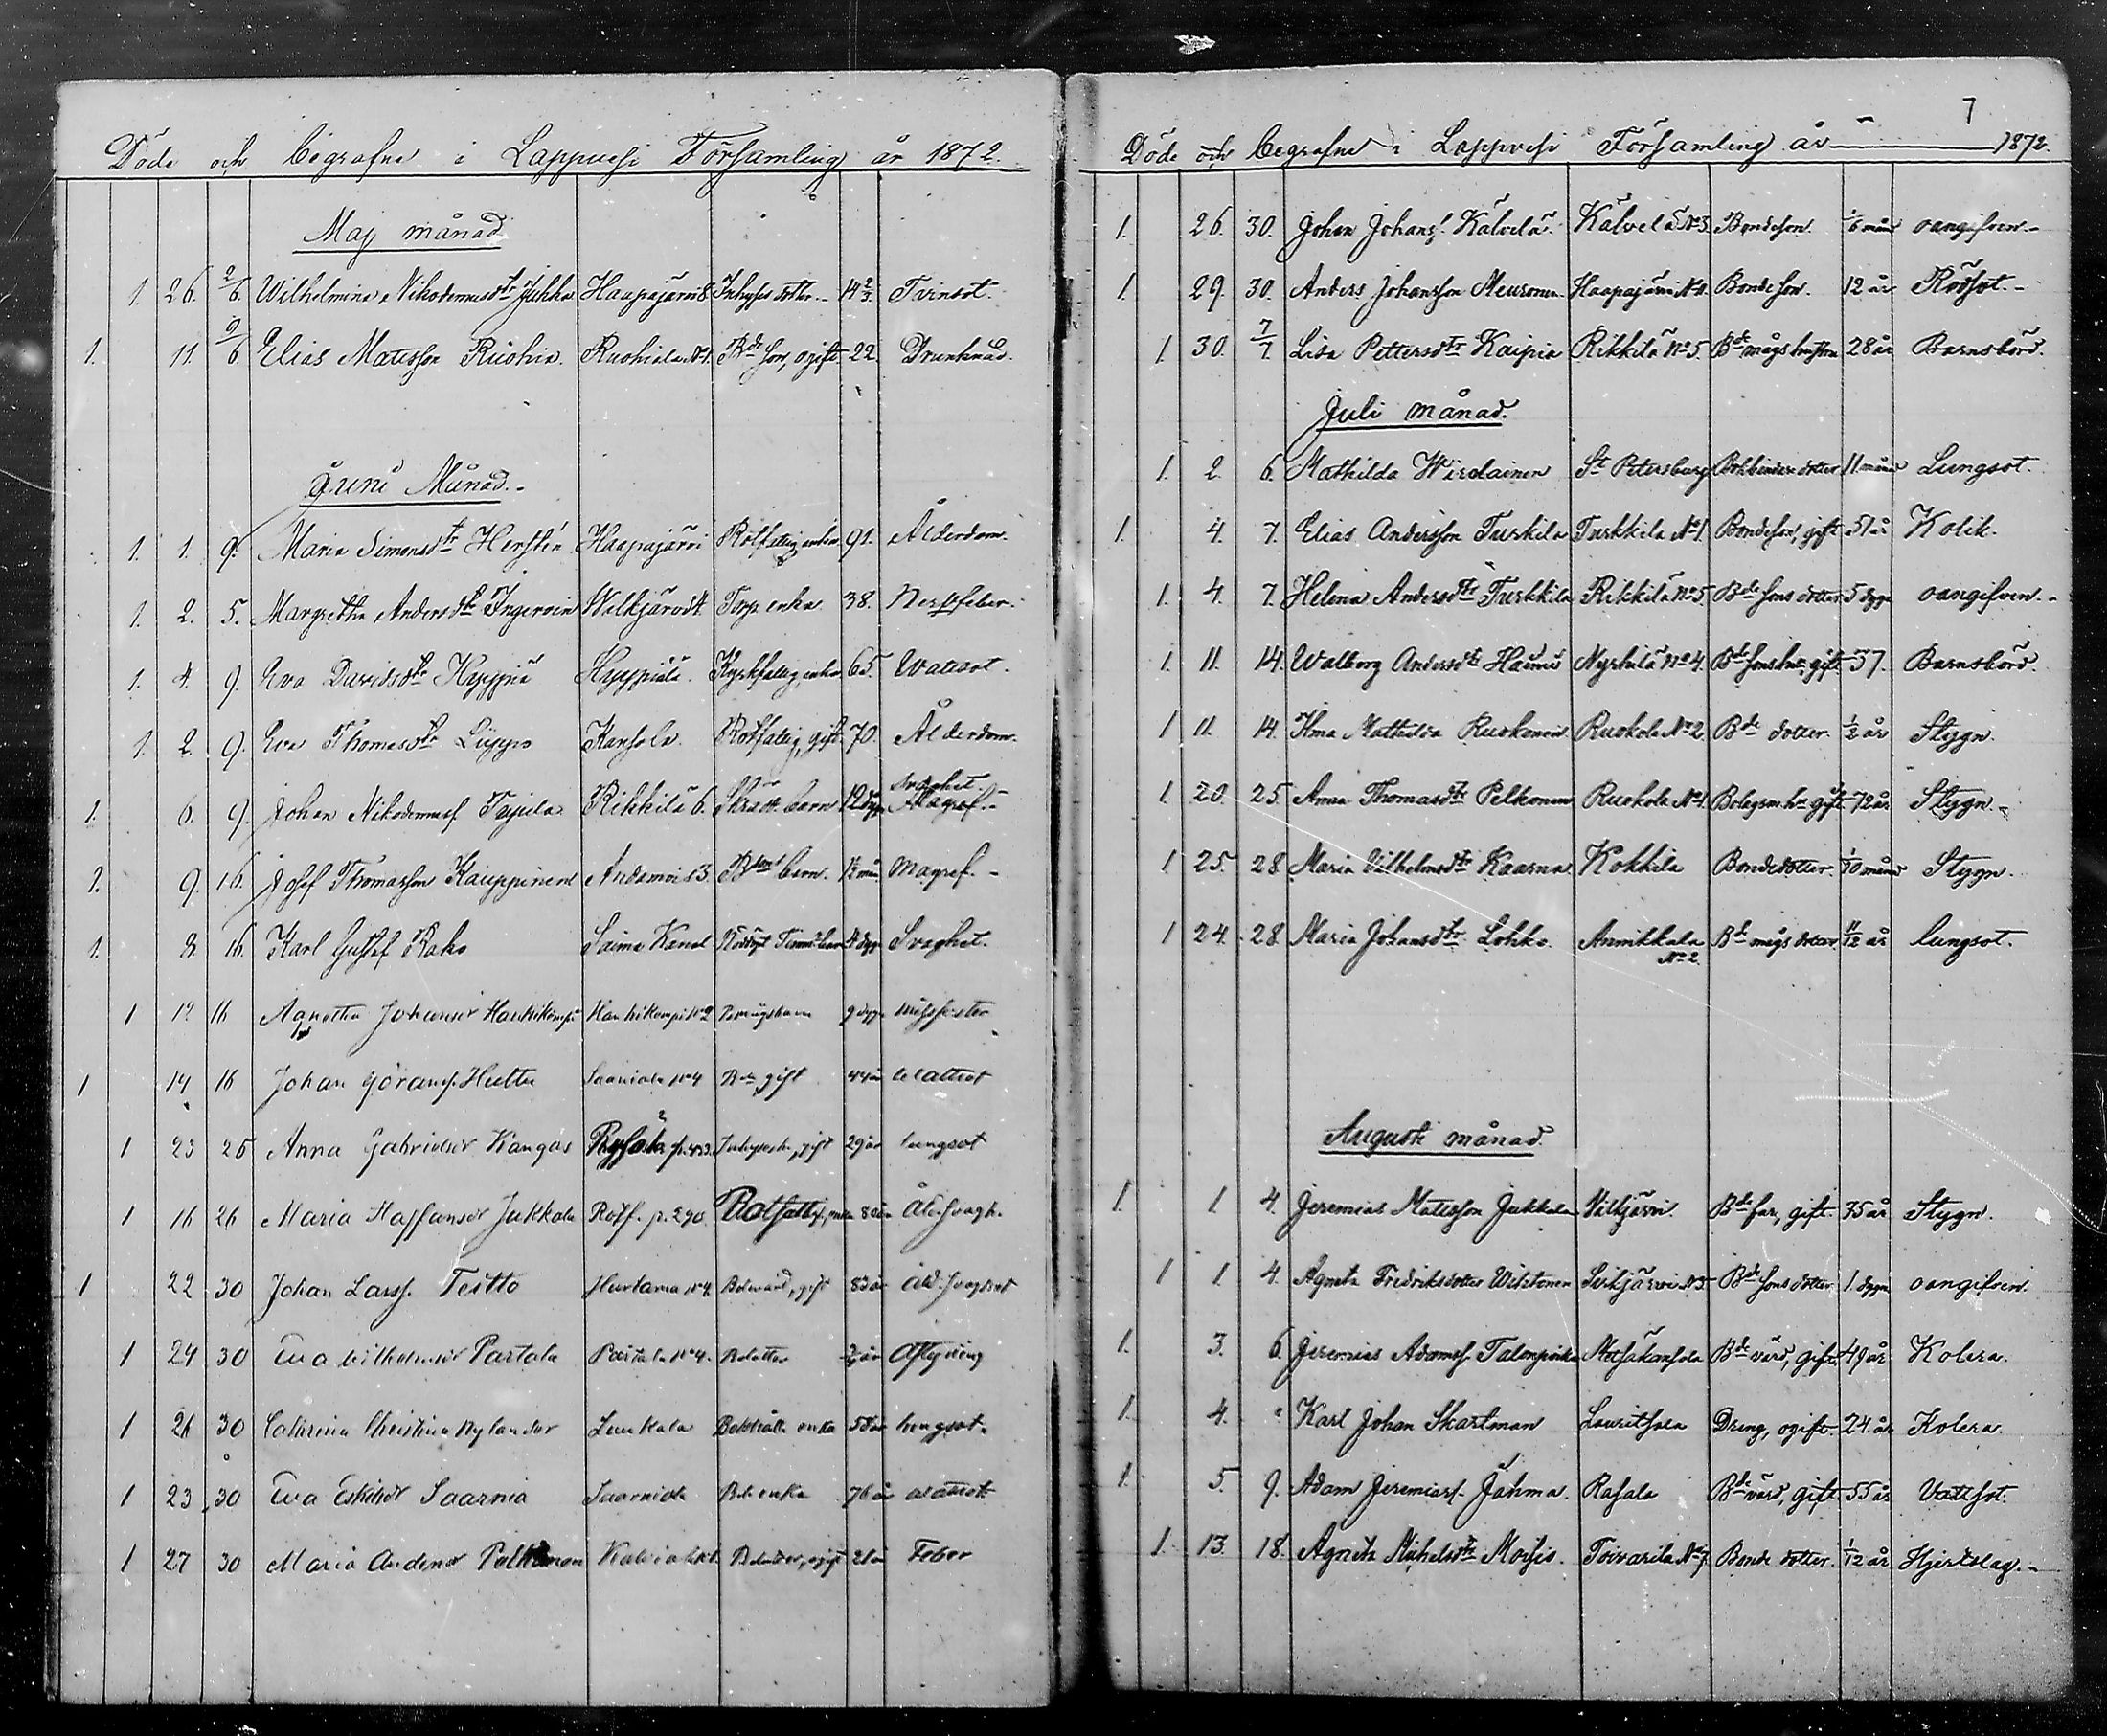 Döde och begrafne i Lappvesi Församling år 1872.
Maj månad
1. 26. 2/6. Wilhelmina Nikodemusdtr Jukka Haapajärvi 8. Inhyses dotter. 14 2/3 Tvinsot.
1. 11. 9/6 Elias Matsson Ruohia. Ruohiala N:1. Bde son, ogift 22 Drunknad.
Juni Månad.
1. 1. 9. Maria Simonsdtr Haapajärvi Rotfattig enka 91. Ålderdom.
1. 2. 5. Margretha Andersdtr Ingeroin Torp enka 38. Nervfeber.
1. 4. 9. Eva Davidsdtr Hyppiä Hyppiälä. enka 65. Wattsot.
1. 2. 9. Eva Thomasdtr Lyppo Kansola. Rotfattig, gift 70. Ålderdom.
1. 6. 9. Johan Nikodemusf Rikkilä 6. Skrädd. barn 12 dygn Svaghet
9. 16. Josef Thomasson Kauppinen 3. barn. Magref.
1. 8. 16. Karl Gustaf Rako Saima Kanal 4 dyg Svaghet.
1 12 16 Agnetha Johansdr Hanhikempi Hanhikempi N:2 9 dygn
1 14 16 Johan Göransf. Huttu Saarniala N:4 gift 44 år Wattsot
1 23 25 Anna Gabrielsdr Kangas p. 433. gift 29 år lungsot
1 16 26 Maria Staffansdr Jukkala Rotf. p. 290. Rotfattig, enka
1 22 30 Johan Larsf. Teitto Hurtanma N:4. gift 83 år åld. svaghet
1 24 30 Eva Wilhelmsdr Partala Partala N:4. Aftyning
1 26 30 Cathrina Christina Nylander enka lungsot.
1 23 30 Eva Eskilsdr Saarnia Saarniala enka 76 år wattsot
1 27 30 Maria Andersdr Pulkkinen ogift 21 år Feber
7
Döde och begrafne i Lappvesi Församling år 1872.
1. 26. 30. Johan Johansf. Kälvelä. Kälvelä N:3. Bondeson. 6 mån oangifven.
1. 29. 30. Anders Johansson Meuronen. Haapajärvi N:4. Bondeson. 12 år Rödsot.
1 30. 7/7. Lisa Pettersdtr Kaipia Rikkilä N:5. Bde mågs hustru 28 år Barnsbörd.
Juli månad.
1. 2. 6. Mathilda Wirolainen St Petersburg Bokbindare dotter 11 månad Lungsot.
1. 4. 7. Elias Andersson Turkkila Turkkila N:1. Bondeson, gift 51 år Kolik.
1. 4. 7. Helena Andersdtr Turkkila Rikkilä N:5. Bde sons dotter 5 dygn oangifven.
1. 11. 14. Walborg Andersdtr Haimi Nyrhilä N:4. Bde sons hu, gift 37. Barnsbörd.
1 11. 14. Alma Mathilda Ruokonen Ruokola N:2 Bde dotter. 1/2 år Stygn.
1 20. 25. Anna Thomasdtr Pelkonen Ruokola N:1. Bolagsm. hu gift 72 år Stygn.
1 25. 28 Maria Vilhelmsdtr Kaarna Kokkila Bondedotter. 10 månad Stygn.
1 24. 28 Maria Johansdtr Lohko. Armikkala N:2. Bde mågs dotter 11/12 år lungsot.
Augusti månad.
1. 1 4. Jeremias Matsson Jukkala Vilkjärvi. Bde far, gift. 35 år Stygn.
1 1 4. Agneta Fredriksdotter N:3. Bde sons dotter 1. dygn oangifven.
1. 3. 6. Jeremias Adamsf. Talonpoika Metsäkansola Bde värd, gift. 49 år Kolera.
1. 4. " Karl Johan Skartman Lauritsala Dreng, ogift. 24 år Kolera.
1. 5 9. Adam Jeremiasf. Jähma. Rasala Bde värd, gift. 55 år Vattsot.
1. 13. 18. Agneta Mickelsdtr Moisio. Toivarila N:7. Bonde dotter. 1/12 år Hjertslag.